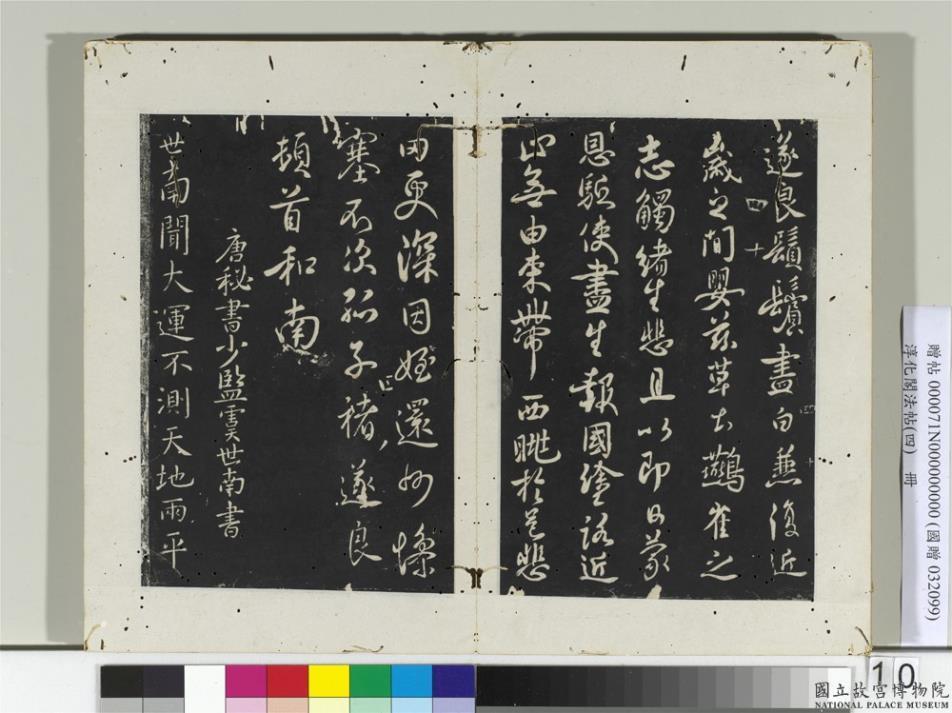 遂良鬚鬢盡白兼復近
歲之間嬰茲草土鷰雀之
志觸緒生悲且以即日蒙
恩驅使盡生報國塗路近
止無由束帶西眺於邑悲
田更深因姪還州慘
塞不次孤子褚遂良
頓首和南
唐秘書少監虞世南書
世南聞大運不測天地兩平
贈帖 000071N000000000 (國贈 032099)
淳化閣法帖(四) 冊
10
國立故宮博物院
NATIONAL PALACE MUSEUM